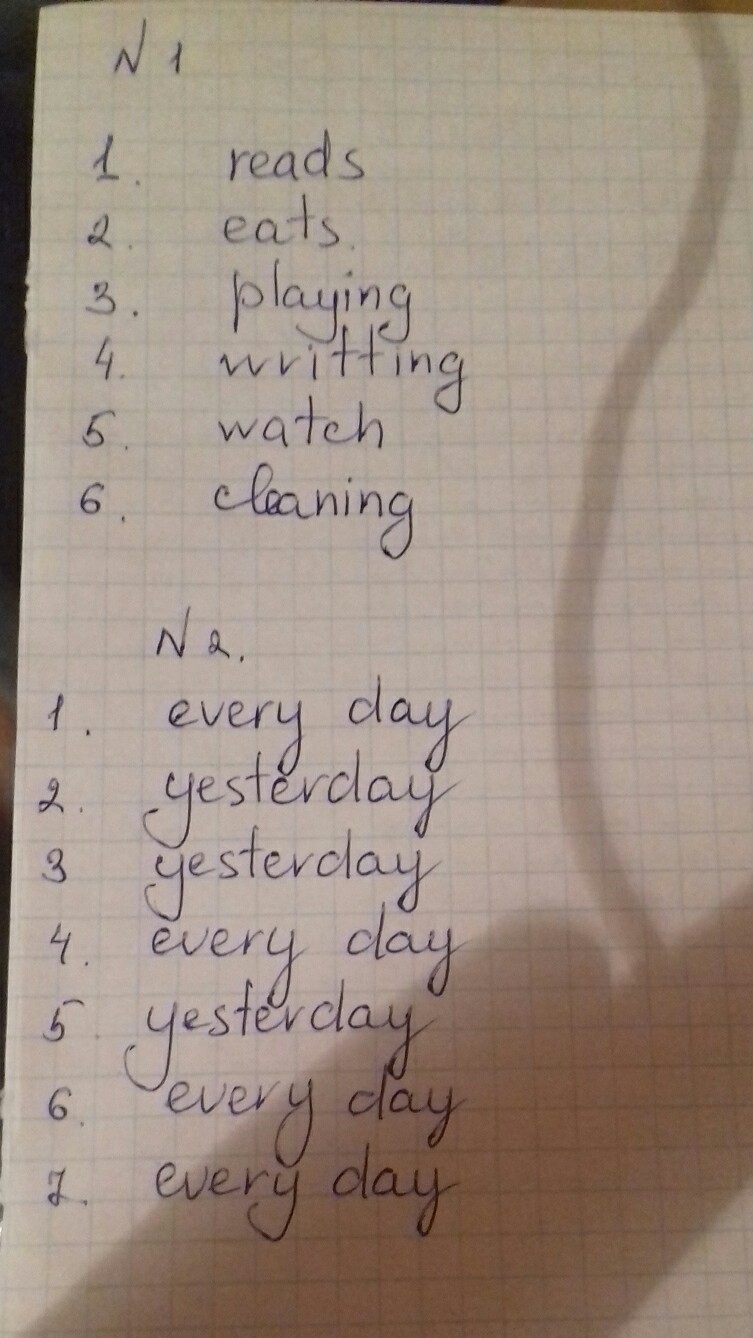 N 1
1. reads
2. eats.
3. playing
4. writting
5. watch
6. cleaning
N 2.
1. every day
2. yesterday
3 yesterday
4. every day
5 yesterday
6. every day
7. every day